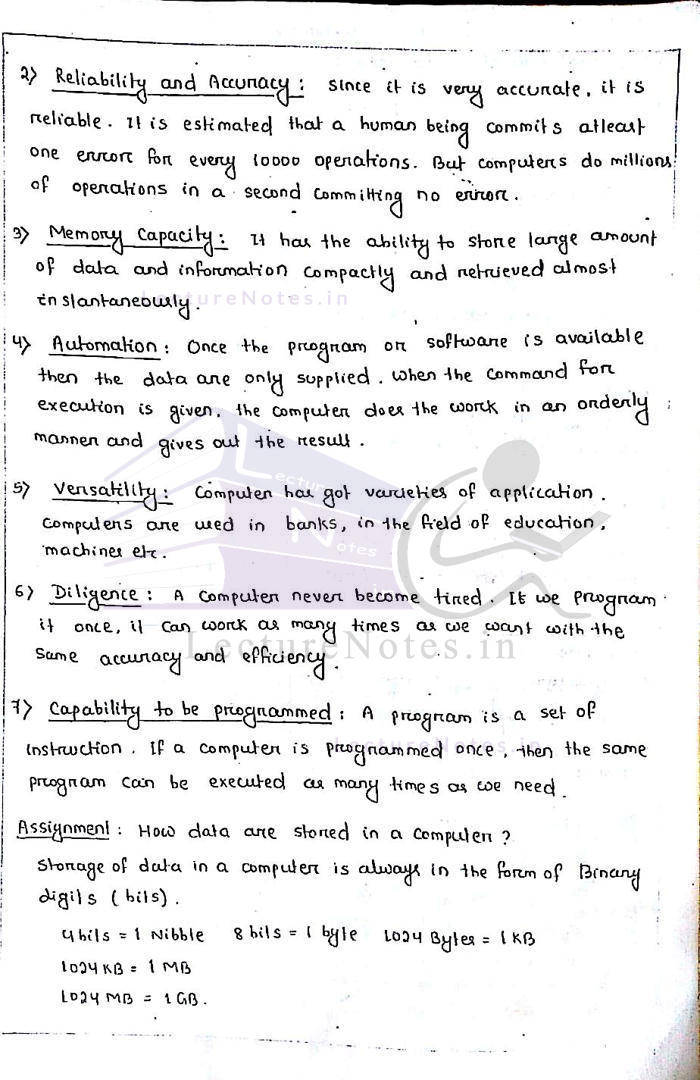 2) Reliability and Accuracy : Since it is very accurate, it is
reliable. It is estimated that a human being commits atleast
one error for every 10000 operations. But computers do millions
of operations in a second committing no error.
3) Memory Capacity : It has the ability to store large amount
of data and information compactly and retrieved almost
instantaneously.
LectureNotes.in
4) Automation : Once the program or software is available
then the data are only supplied. When the command for
execution is given, the computer does the work in an orderly
manner and gives out the result.
Lecture
Notes
5) Versatility : Computer has got varieties of application.
Computers are used in banks, in the field of education,
machines etc.
6) Diligence : A computer never become tired. If we program
it once, it can work as many times as we want with the
same accuracy and efficiency.
LectureNotes.in
7) Capability to be programmed : A program is a set of
instruction. If a computer is programmed once, then the same
LectureNotes.in
program can be executed as many times as we need.
Assignment : How data are stored in a computer ?
Storage of data in a computer is always in the form of Binary
digits (bits).
4 bits = 1 Nibble 8 bits = 1 byte 1024 Bytes = 1 KB
1024 KB = 1 MB
1024 MB = 1 GB.